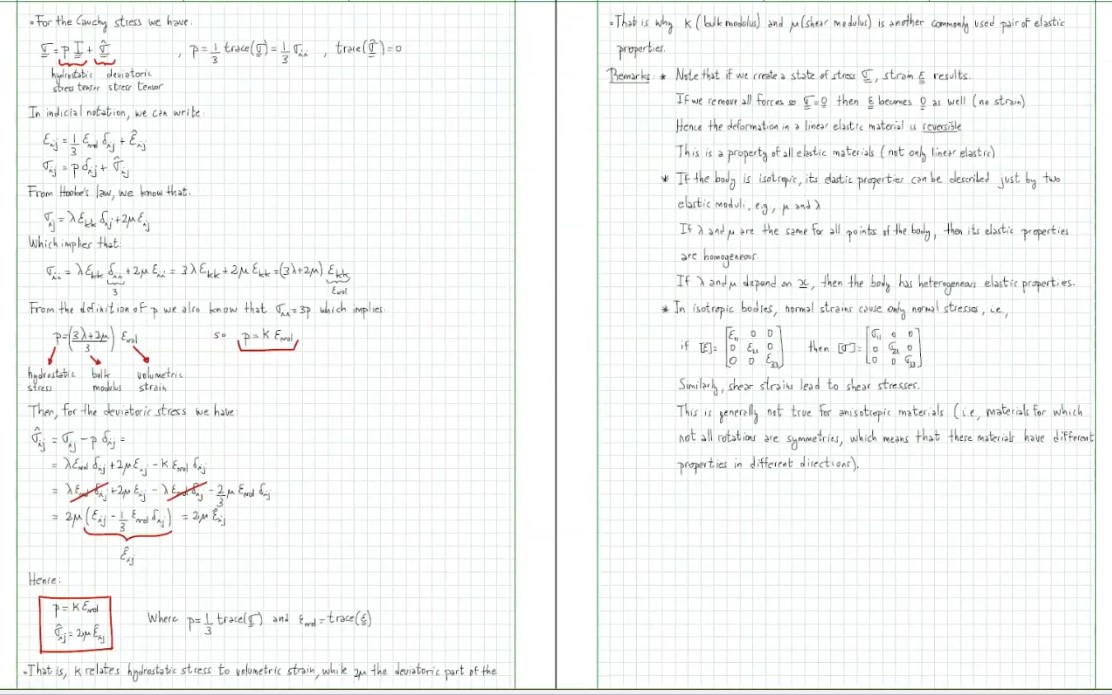 •For the Cauchy stress we have:
σ = p I + σ̂ , p = 1/3 trace(σ) = 1/3 σᵢᵢ , trace(σ̂) = 0
hydrostatic deviatoric
stress tensor stress tensor
In indicial notation, we can write:
εᵢⱼ = 1/3 εvol δᵢⱼ + ε̂ᵢⱼ
σᵢⱼ = p δᵢⱼ + σ̂ᵢⱼ
From Hooke's law, we know that:
σᵢⱼ = λ εkk δᵢⱼ + 2μ εᵢⱼ
Which implies that:
σᵢᵢ = λ εkk δᵢᵢ + 2μ εᵢᵢ = 3λ εkk + 2μ εkk = (3λ+2μ) εkk
3 εvol
From the definition of p we also know that σᵢᵢ = 3p which implies:
p = (3λ+2μ)/3 εvol so p = K εvol
hydrostatic bulk volumetric
stress modulus strain
Then, for the deviatoric stress we have:
σ̂ᵢⱼ = σᵢⱼ - p δᵢⱼ =
= λ εvol δᵢⱼ + 2μ εᵢⱼ - K εvol δᵢⱼ
= λ εvol δᵢⱼ + 2μ εᵢⱼ - λ εvol δᵢⱼ - 2/3 μ εvol δᵢⱼ
= 2μ (εᵢⱼ - 1/3 εvol δᵢⱼ) = 2μ ε̂ᵢⱼ
ε̂ᵢⱼ
Hence:
p = K εvol
σ̂ᵢⱼ = 2μ ε̂ᵢⱼ
Where p = 1/3 trace(σ) and εvol = trace(ε)
•That is, K relates hydrostatic stress to volumetric strain, while 2μ the deviatoric part of the
•That is why K (bulk modulus) and μ (shear modulus) is another commonly used pair of elastic
properties.
Remarks: * Note that if we create a state of stress σ, strain ε results.
If we remove all forces so σ = 0 then ε becomes 0 as well (no strain)
Hence the deformation in a linear elastic material is reversible
This is a property of all elastic materials (not only linear elastic)
* If the body is isotropic, its elastic properties can be described just by two
elastic moduli, e.g., μ and λ
If λ and μ are the same for all points of the body, then its elastic properties
are homogeneous.
If λ and μ depend on x, then the body has heterogeneous elastic properties.
* In isotropic bodies, normal strains cause only normal stresses, i.e.,
if [ε] = [ε₁₁ 0 0; 0 ε₂₂ 0; 0 0 ε₃₃] then [σ] = [σ₁₁ 0 0; 0 σ₂₂ 0; 0 0 σ₃₃]
Similarly, shear strains lead to shear stresses.
This is generally not true for anisotropic materials (i.e., materials for which
not all rotations are symmetries, which means that these materials have different
properties in different directions).